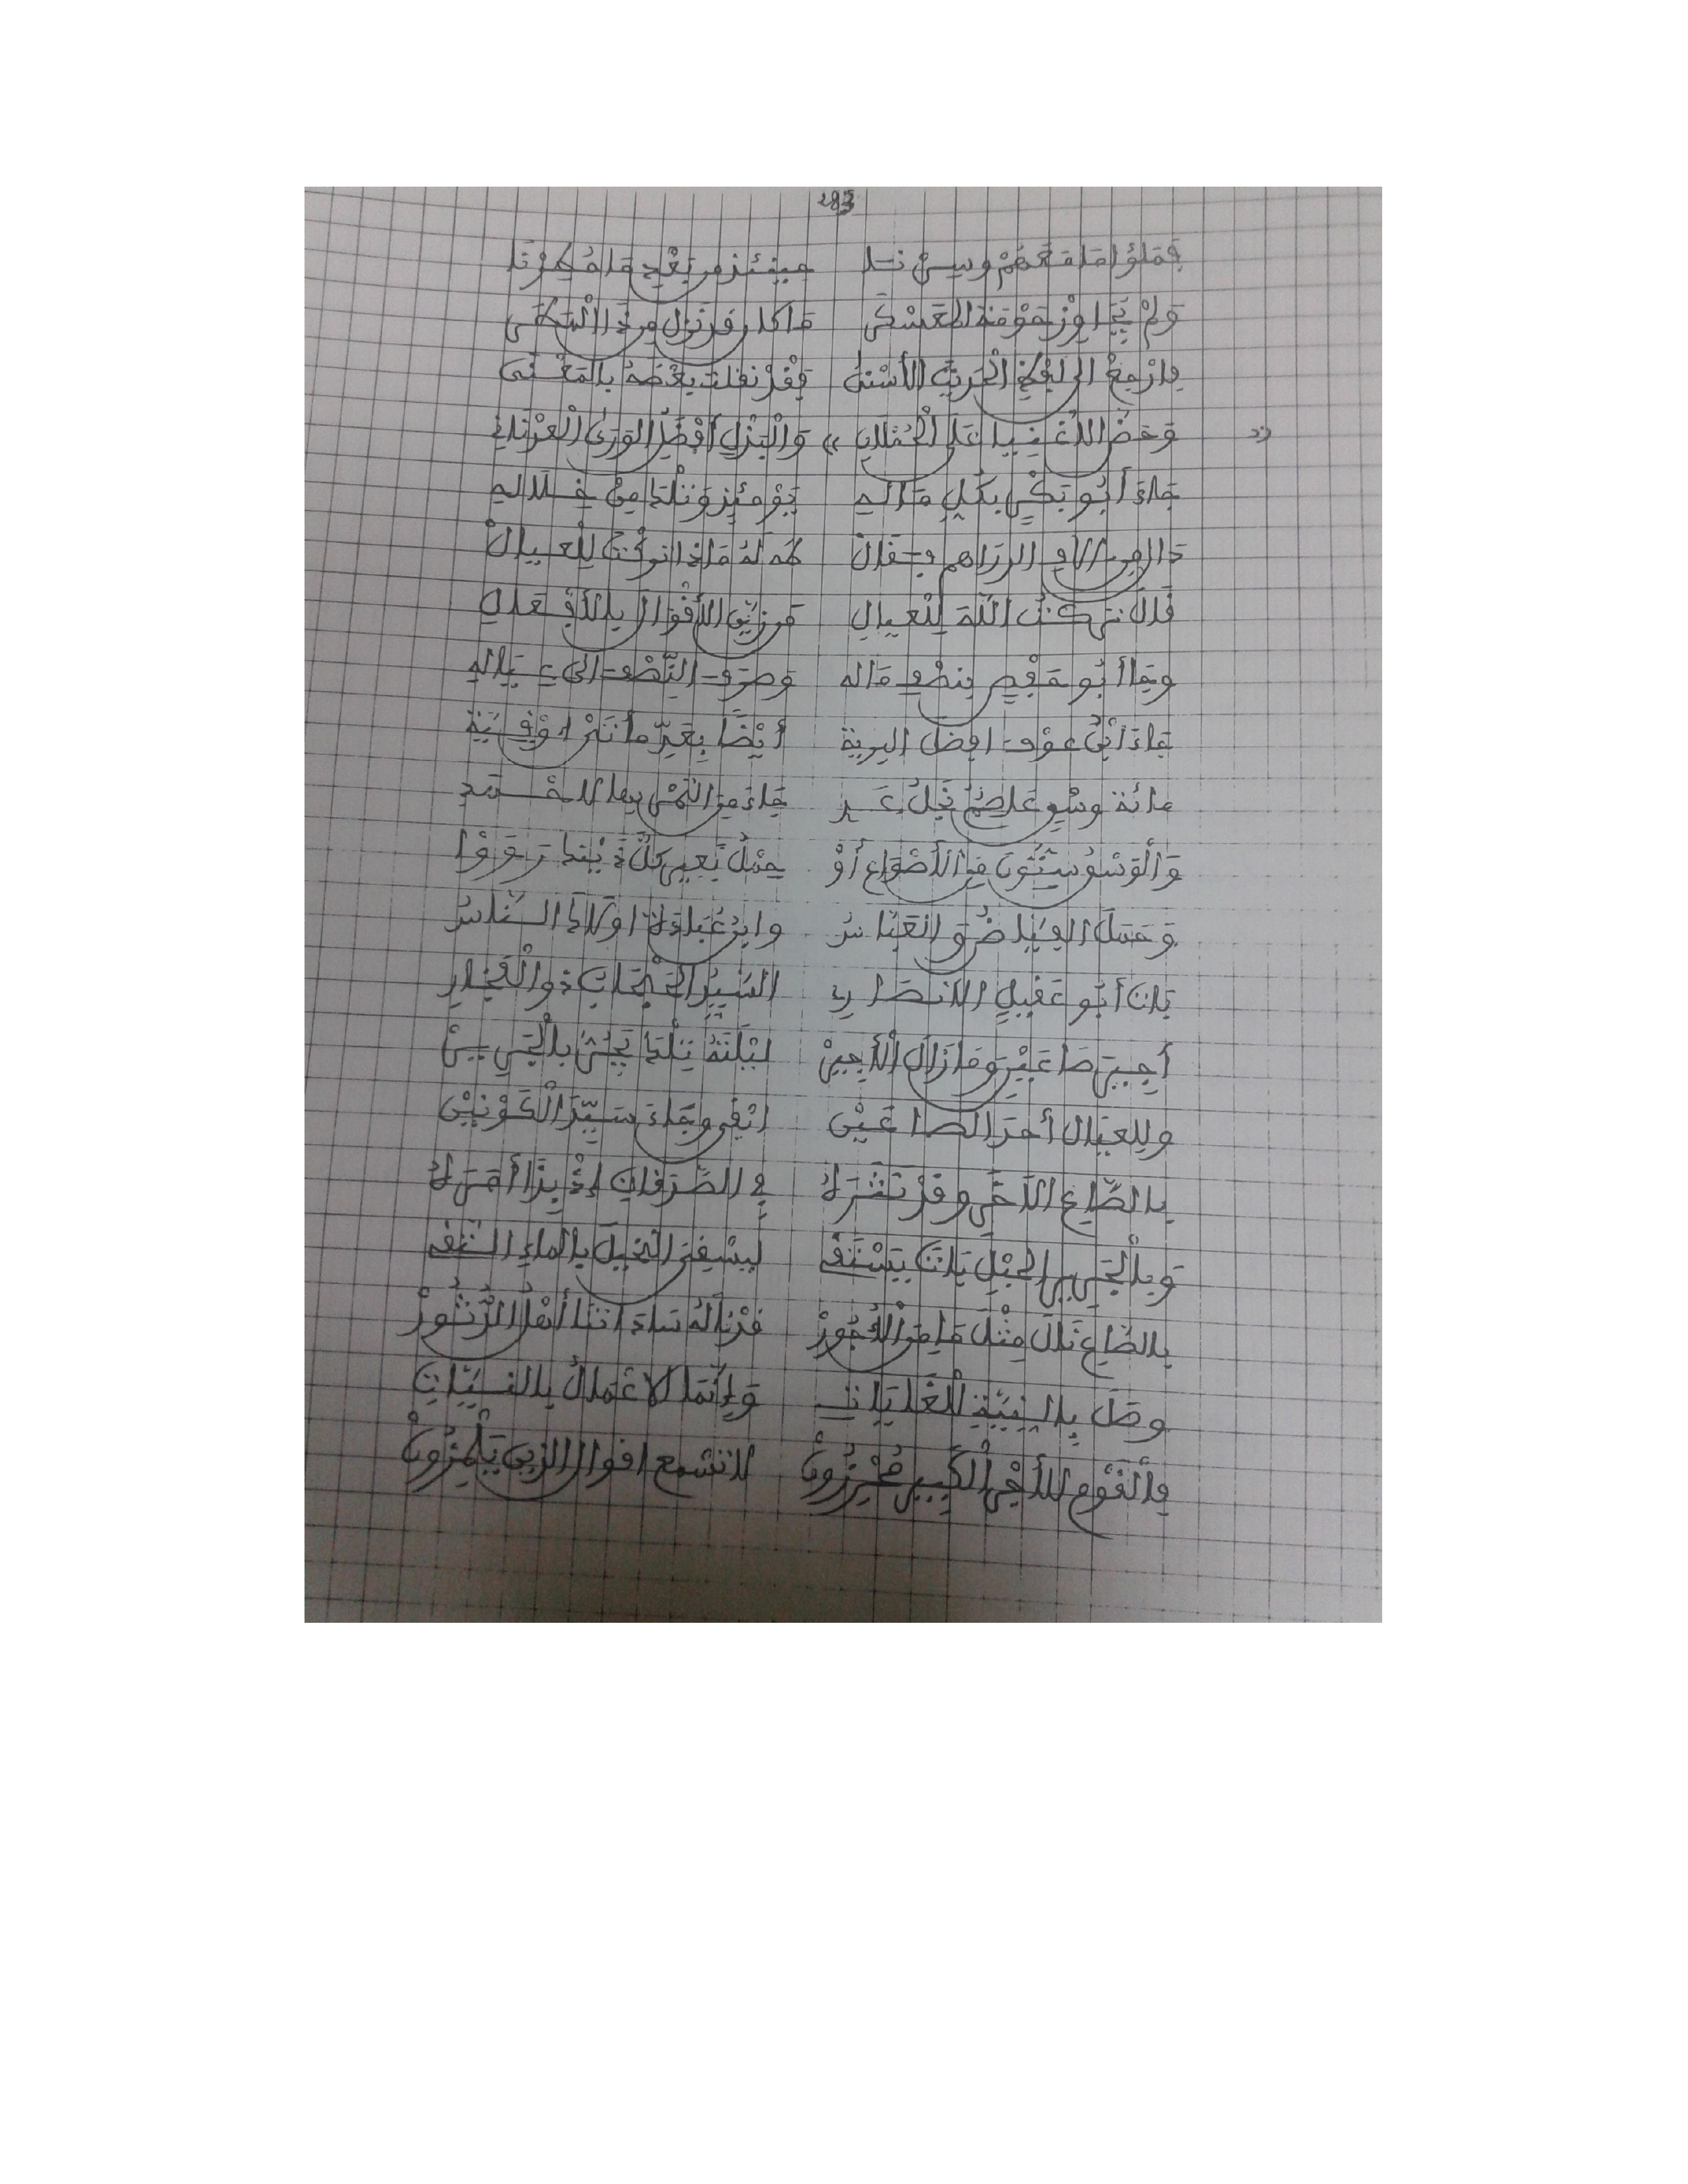 283
فملؤا ما معهم وسرنا حينئذ من بعد ما مطرنا
ولم يجاوز موقف المعسكر ما كان قد نزل من ذا
فارجع الى الحديث الأسنى فقد نقلت بعضه بالمعنى
وحض الاغنيا على الحملان والبذل أفضل الورى العدناني
جاء أبو بكر بكل ماله يومئذ ونلت من خلاله
دالا من الاف الدراهم فقال طه له ماذا تركت للعيال
قال تركت الله للعيال من زين الأقوال بالأفعال
وجا أبو حفص بنصف ماله وصرف النصف الى عياله
جاء ابن عوف افضل البرية أيضا بعد مأتي اوقية
مائة وسق عاصم نجل عد جاء من التمر بها لاحمد
والوسق ستون من الأصواع أو حمل بعير كل ذين قد رووا
وحمل الفياض والعباس وابن عبادة اولاك الناس
بات أبو عقيل الانصاري السيد الحبحاب ذو الفخار
أجير صاعين وما زال الأجير ليلته تلك يجر بالجرير
وللعيال أحد الصاعين ابقى وجاء سيد الكونين
بالصاع الاخر وقد تشرك في الصدقات إذ بذا أمرك
وبالجرير الحبل بات يستقى ليسقي النخيل بالماء النقى
بالصاع نال مثل ما من الأجور قد ناله ساداتنا أهل الدثور
وصل بالنية للغايات وإنما الاعمال بالنيات
فالقوم للأجر الكبير محرزون لا تسمع اقوال الذين يلمزون